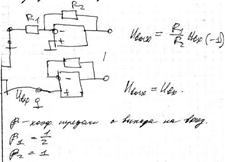 R₁
R₂
Uвых = R₁/R₂ Uвх (-1)
Uвых = Uвх.
Uвх
β - коэф. передачи с выхода на вход.
β₁ = 1/2
β₂ = 1